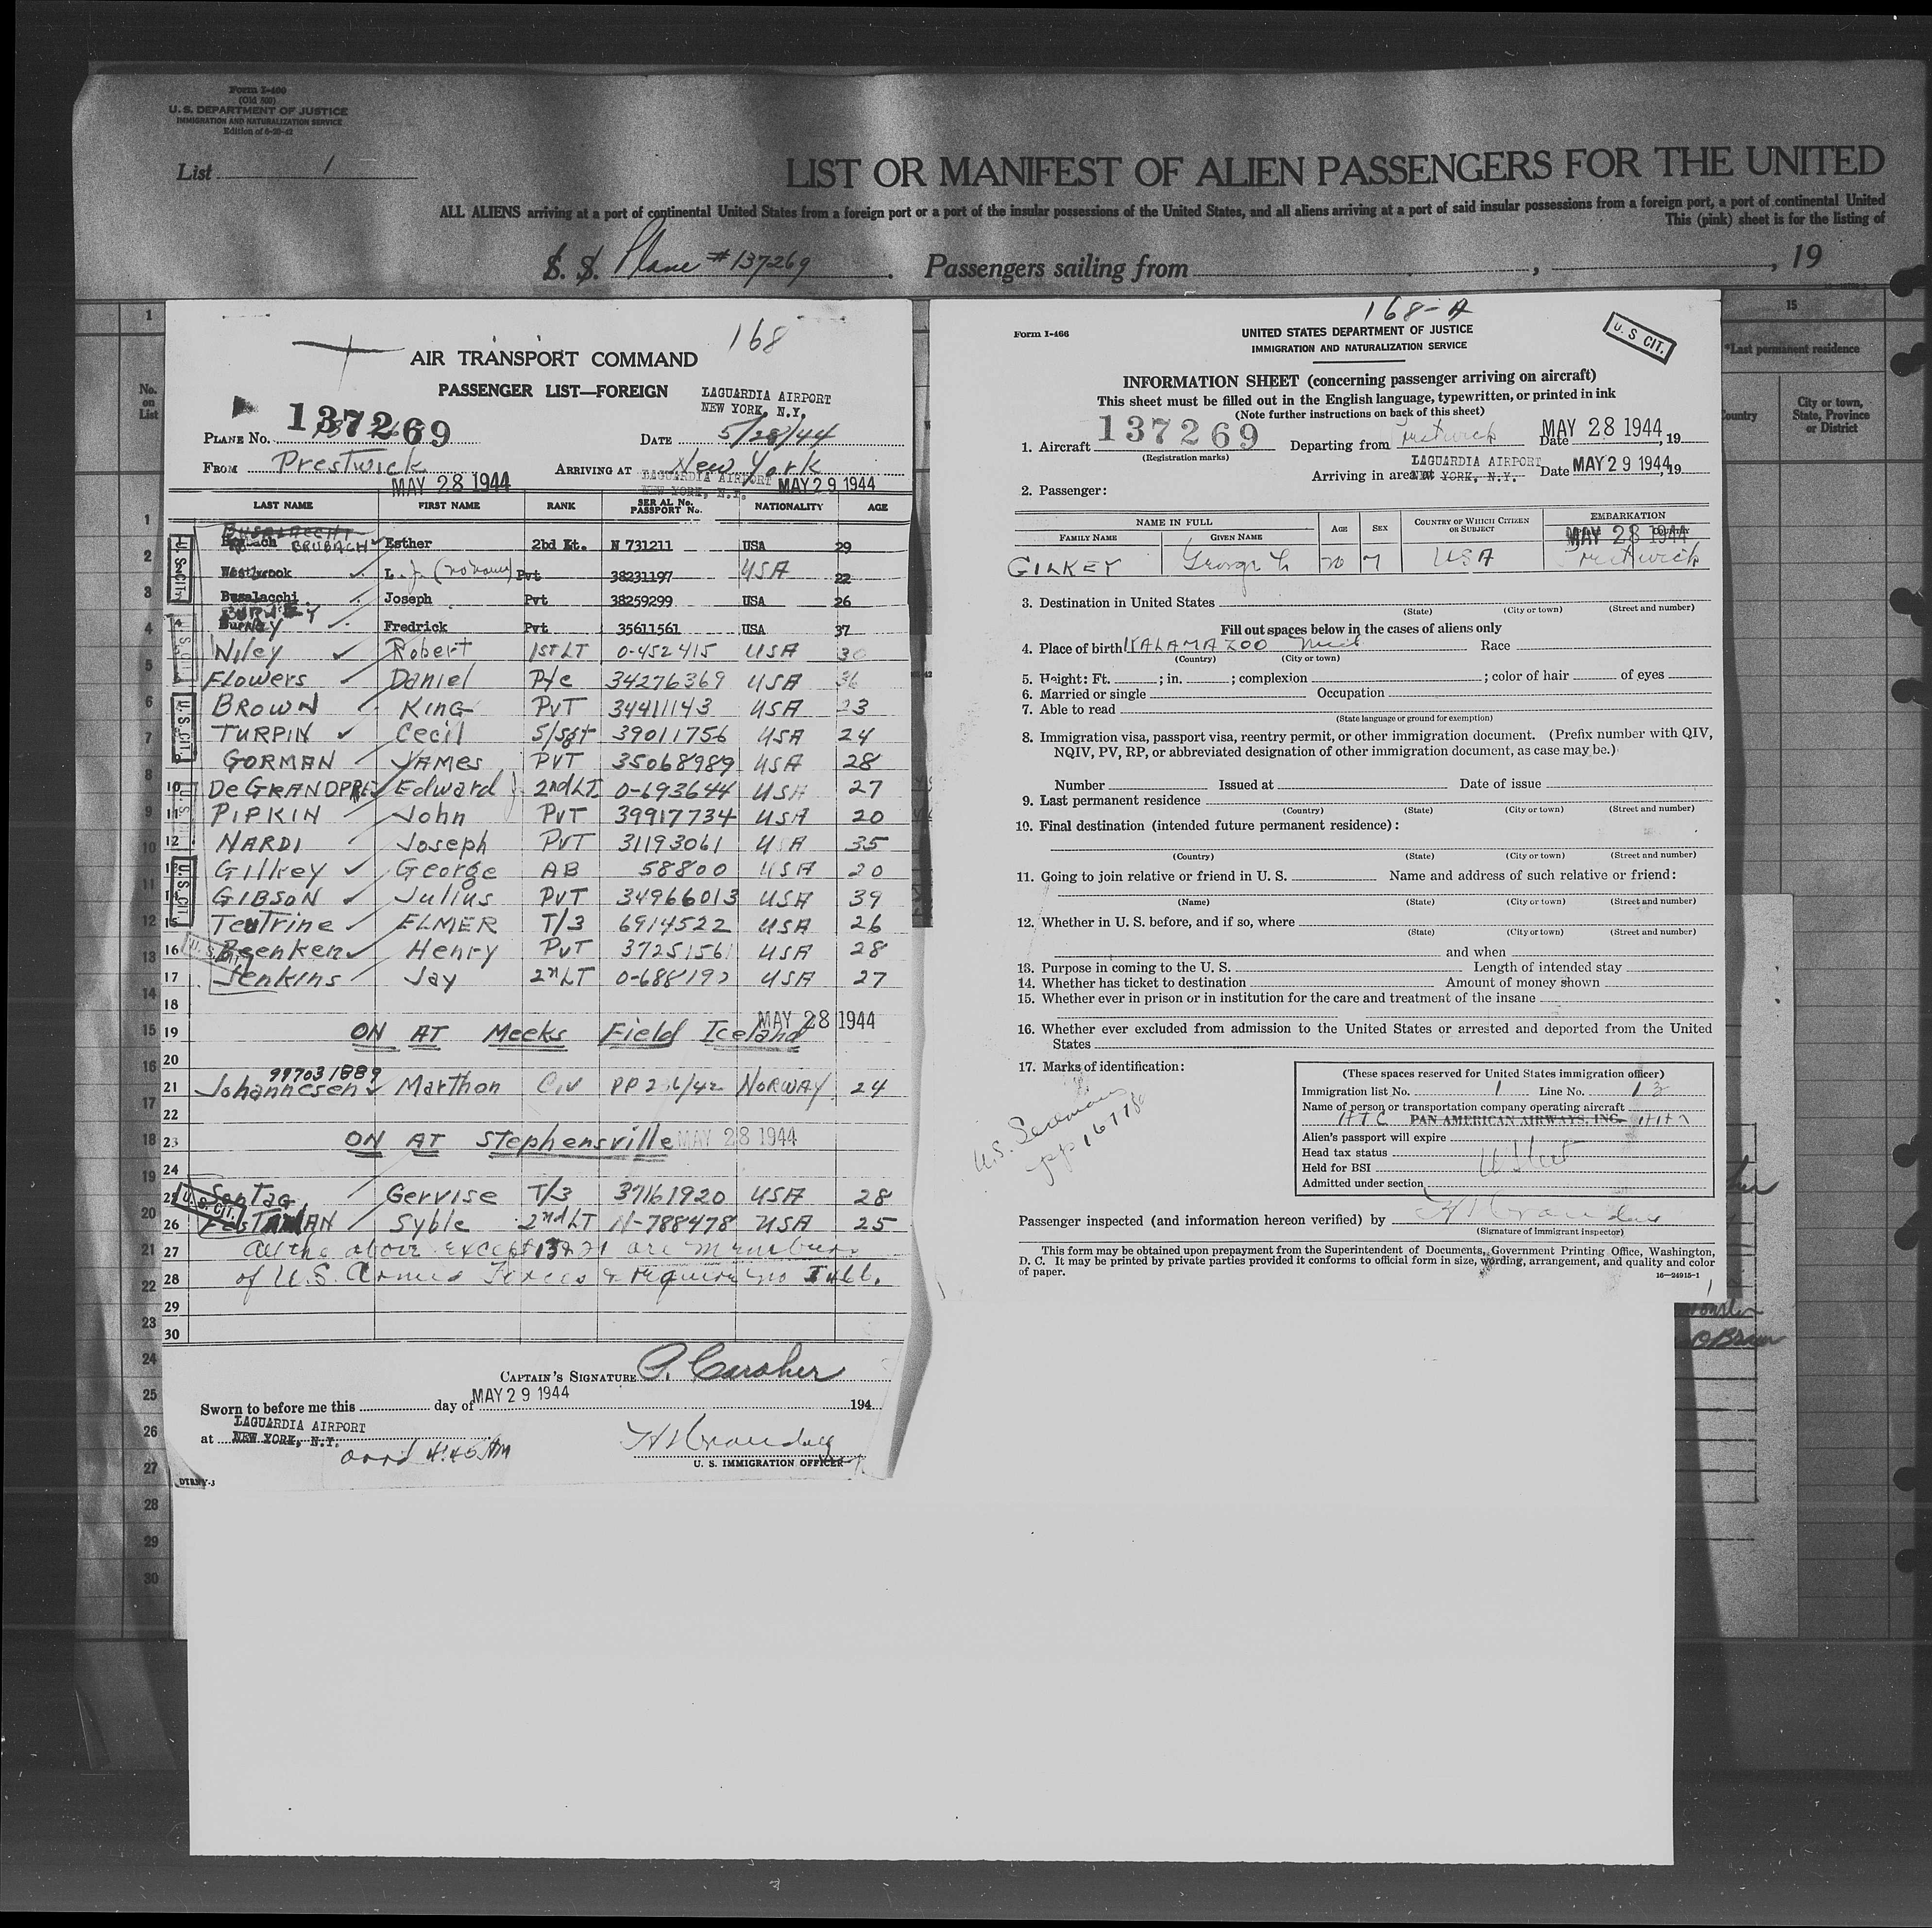 Form I-400
(Old 500)
U. S. DEPARTMENT OF JUSTICE
IMMIGRATION AND NATURALIZATION SERVICE
Edition of 6-20-42
List 1
LIST OR MANIFEST OF ALIEN PASSENGERS FOR THE UNITED
ALL ALIENS arriving at a port of continental United States from a foreign port or a port of the insular possessions of the United States, and all aliens arriving at a port of said insular possessions from a foreign port, a port of continental United
This (pink) sheet is for the listing of
S. S. Plane #137269. Passengers sailing from , , 19
15
*Last permanent residence
No. on List
Country
City or town, State, Province or District
168
AIR TRANSPORT COMMAND
PASSENGER LIST—FOREIGN
LAGUARDIA AIRPORT
NEW YORK, N.Y.
PLANE NO. 137269 DATE 5/28/44
FROM Prestwick ARRIVING AT New York
MAY 28 1944 LAGUARDIA AIRPORT NEW YORK, N.Y. MAY 29 1944
LAST NAME FIRST NAME RANK SERIAL No. PASSPORT No. NATIONALITY AGE
BUSALACCHI
BRUBACH Esther 2bd Lt. N 731211 USA 29
Westbrook L. J. (no name) Pvt 38231197 USA 22
Busalacchi Joseph Pvt 38259299 USA 26
BURNEY
Burney Fredrick Pvt 35611561 USA 37
Niley Robert 1ST LT 0-452415 USA 30
Flowers Daniel Pfc 34276369 USA 36
BROWN KING PVT 34411143 USA 23
TURPIN Cecil S/Sgt 39011756 USA 24
GORMAN JAMES PVT 35068989 USA 28
DeGRANDPRE Edward 2nd LT 0-693644 USA 27
PIPKIN John PVT 39917734 USA 20
NARDI Joseph PVT 31193061 USA 35
Gilkey George AB 58800 USA 20
GIBSON Julius PVT 34966013 USA 39
Teutrine ELMER T/3 6914522 USA 26
Beenken Henry PVT 37251561 USA 28
Jenkins Jay 2nd LT 0-688192 USA 27
MAY 28 1944
ON AT Meeks Field Iceland
997031889
Johannesen Marthon Civ PP 236/42 NORWAY 24
ON AT Stephensville MAY 28 1944
Sontag Gervise T/3 37161920 USA 28
U. S. CIT.
Syble 2nd LT N-788478 USA 25
All the above except 13 & 21 are members
of U.S. Armed Forces & require no
CAPTAIN'S SIGNATURE
Sworn to before me this day of MAY 29 1944 194
LAGUARDIA AIRPORT
at NEW YORK, N.Y.
arrd 4:40 AM
U. S. IMMIGRATION OFFICER
DTRNY-3
168-A
Form I-466
UNITED STATES DEPARTMENT OF JUSTICE
IMMIGRATION AND NATURALIZATION SERVICE
U. S CIT.
INFORMATION SHEET (concerning passenger arriving on aircraft)
This sheet must be filled out in the English language, typewritten, or printed in ink
(Note further instructions on back of this sheet)
1. Aircraft 137269 Departing from Prestwick Date MAY 28 1944, 19
(Registration marks)
Arriving in area at LAGUARDIA AIRPORT NEW YORK, N.Y. Date MAY 29 1944, 19
2. Passenger:
NAME IN FULL AGE SEX COUNTRY OF WHICH CITIZEN OR SUBJECT EMBARKATION
FAMILY NAME GIVEN NAME MAY 28 1944
GILKEY George L 20 M USA Prestwick
3. Destination in United States
(State) (City or town) (Street and number)
Fill out spaces below in the cases of aliens only
4. Place of birth KALAMAZOO Mich Race
(Country) (City or town)
5. Height: Ft. ; in. ; complexion ; color of hair of eyes
6. Married or single Occupation
7. Able to read
(State language or ground for exemption)
8. Immigration visa, passport visa, reentry permit, or other immigration document. (Prefix number with QIV,
NQIV, PV, RP, or abbreviated designation of other immigration document, as case may be.)
Number Issued at Date of issue
9. Last permanent residence
(Country) (State) (City or town) (Street and number)
10. Final destination (intended future permanent residence):
(Country) (State) (City or town) (Street and number)
11. Going to join relative or friend in U. S. Name and address of such relative or friend:
(Name) (State) (City or town) (Street and number)
12. Whether in U. S. before, and if so, where
(State) (City or town) (Street and number)
and when
13. Purpose in coming to the U. S. Length of intended stay
14. Whether has ticket to destination Amount of money shown
15. Whether ever in prison or in institution for the care and treatment of the insane
16. Whether ever excluded from admission to the United States or arrested and deported from the United
States
17. Marks of identification:
U.S. Seaman
pp 16778
(These spaces reserved for United States immigration officer)
Immigration list No. 1 Line No. 13
Name of person or transportation company operating aircraft
ATC PAN AMERICAN AIRWAYS, INC.
Alien's passport will expire
Head tax status
Held for BSI
Admitted under section
Passenger inspected (and information hereon verified) by
(Signature of Immigrant inspector)
This form may be obtained upon prepayment from the Superintendent of Documents, Government Printing Office, Washington,
D. C. It may be printed by private parties provided it conforms to official form in size, wording, arrangement, and quality and color
of paper.
16—24915-1